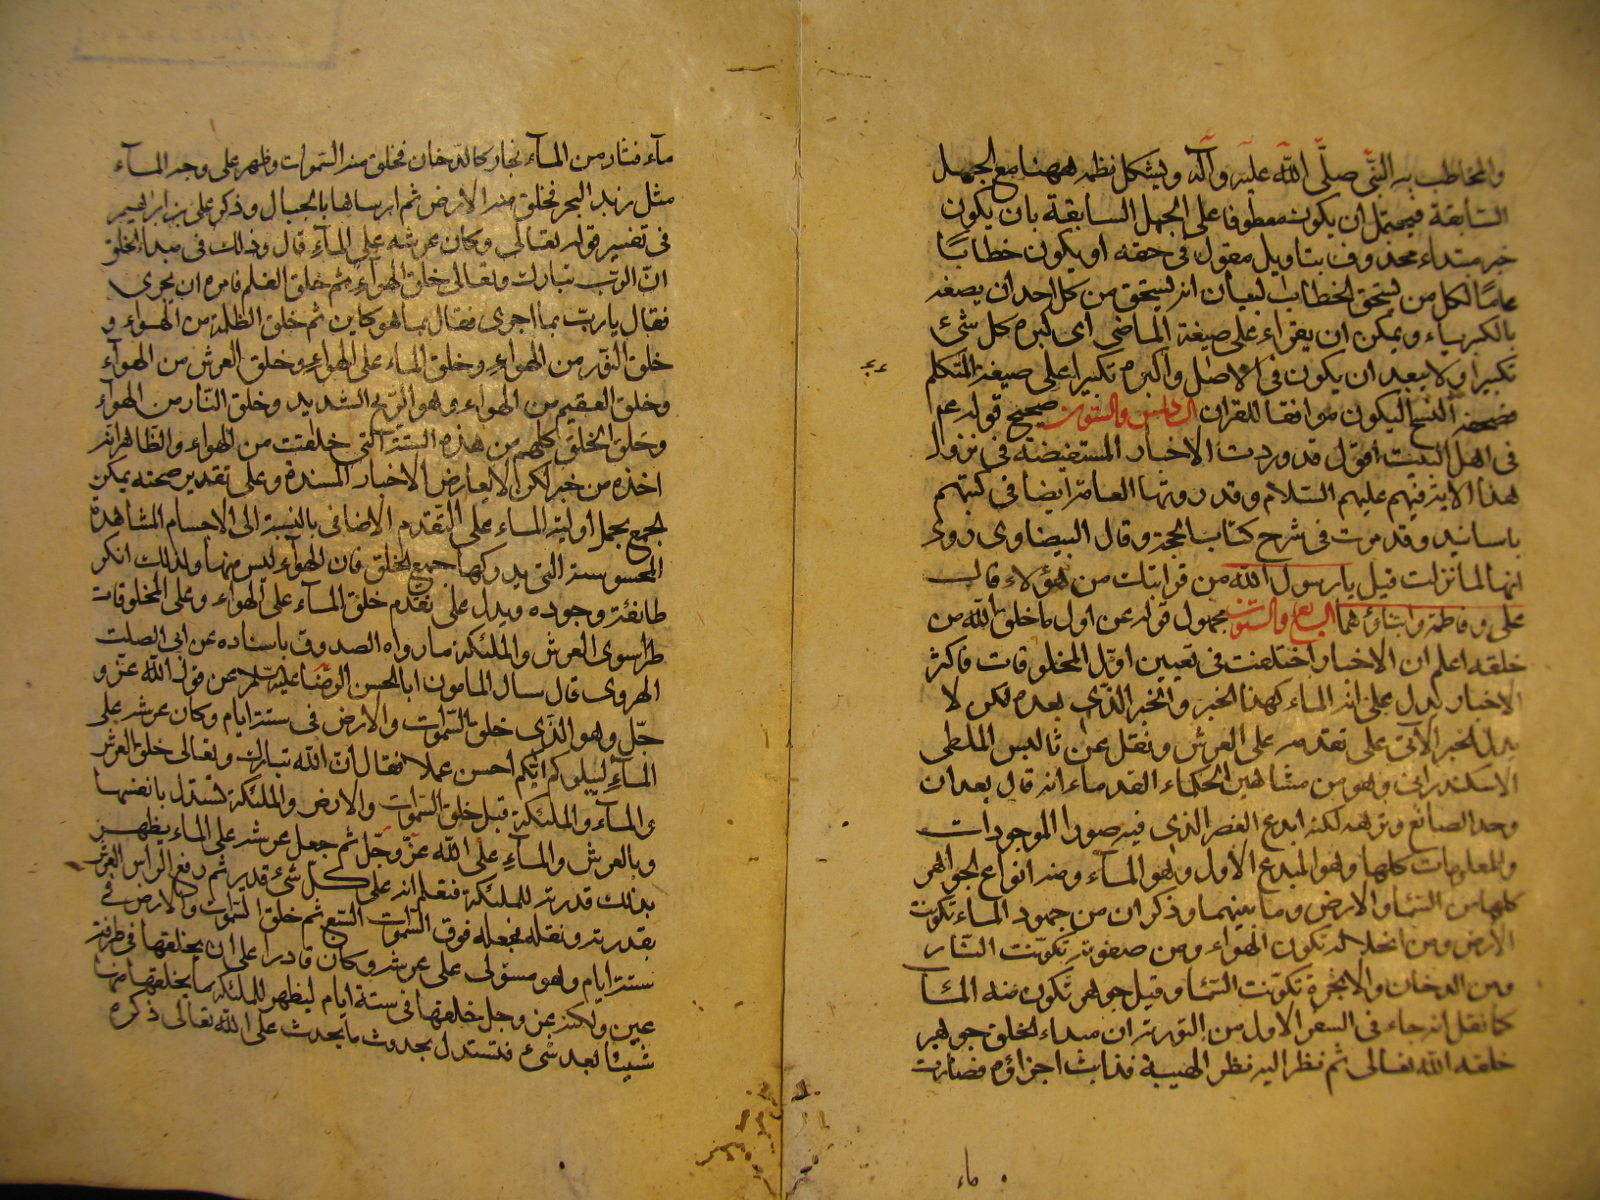 والمخاطب به النبي صلّى اللّه عليه وآله ويشكل نظمه ههنا مع الجمل
السابقة فيحتمل ان يكون معطوفا على الجمل السابقة بان يكون
خبر مبتداء محذوف بتاويل مقول في حقه او يكون خطابا
عاما لكل من يستحق الخطاب لبيان انه يستحق من كل احد ان يصفه
بالكبرياء ويمكن ان يقراء على صيغة الماضى اى كبره كل شئ
تكبيرا ولا يبعد ان يكون في الاصل واكبره تكبيرا على صيغة المتكلم
فصحفه النساخ ليكون موافقا للقران الخامس والستون صحيح قوله عم
في اهل البيت اقول قد وردت الاخبار المستفيضة في نزول
هذا الاية فيهم عليهم السّلام وقد روتها العامة ايضا في كتبهم
باسانيد وقد مرت في شرح كتاب الحجة وقال البيضاوى روى
انها لما نزلت قيل يا رسول اللّه من قرابتك من هؤلاء قال
على وفاطمة وابناؤهما السابع والستون مجهول قوله عن اول ما خلق اللّه من
خلقه اعلم ان الاخبار اختلفت في تعيين اوّل المخلوقات فاكثر
الاخبار يدل على انه الماء كهذا الخبر والخبر الذى بعده لكن لا
يدل الخبر الآتى على تقدمه على العرش ونقل عن ثاليس الملطى
الاسكندرانى وهو من مشاهير الحكماء القدماء انه قال بعد ان
وحد الصانع ونزهه لكنه ابدع العنصر الذى فيه صور الموجودات
والمعلومات كلها وهو المبدع الاول وهو المآء ومنه انواع الجواهر
كلها من السّماء والارض وما بينهما وذكر ان من جمود الماء تكونت
الارض ومن انحلاله تكون الهواء ومن صفوته تكوّنت النّار
ومن الدخان والابخرة تكوّنت السّماء وقيل جوهر تكون منه الماء
كما نقل انه جاء في السفر الاول من التورىة ان مبداء الخلق جوهر
خلقه اللّه تعالى ثم نظر اليه نظر الهيبة فذابت اجزاؤه فصارت
ماء
مآء فثار من المآء بخار كالدّخان فخلق منه السّموات وظهر على وجه المآء
مثل زبد البحر فخلق منه الارض ثم ارساها بالجبال وذكر على بن ابراهيم
في تفسير قوله تعالى وكان عرشه على المآء قال وذلك في مبداء الخلق
انّ الرّب تبارك وتعالى خلق الهواء ثم خلق القلم فامره ان يجرى
فقال يا ربّ بما اجرى فقال بما هو كاين ثم خلق الظلمة من الهواء و
خلق النّور من الهواء وخلق الماء على الهواء وخلق العرش من الهوآء
وخلق العقيم من الهواء وهو الرّيح الشديد وخلق النّار من الهوآء
وخلق الخلق كلهم من هذه الستة التى خلقت من الهواء والظاهر انه
اخذه من خبر لكن لا يعارض الاخبار المسندة وعلى تقدير صحته يمكن
الجمع بحمل اولية الماء على التّقدم الاضافى بالنسبة الى الاجسام المشاهدة
المحسوسة التى يدركها جميع الخلق فان الهوآء ليس منها ولذلك انكر
طائفة وجوده ويدل على تقدم خلق المآء على الهواء وعلى المخلوقات
طرا سوى العرش والملئكة ما رواه الصدوق باسناده عن ابى الصلت
الهروى قال سال المامون ابا الحسن الرضا عليه السّلام عن قول اللّه عزّ و
جلّ وهو الذى خلق السّموات والارض في ستة ايام وكان عرشه على
المآء ليبلوكم ايّكم احسن عملا فقال انّ اللّه تبارك وتعالى خلق العرش
و المآء والملئكة قبل خلق السّموات والارض والملئكة تستدل بانفسها
وبالعرش والمآء على اللّه عزّ وجلّ ثم جعل عرشه على الماء ليظهر
بذلك قدرته للملئكة فتعلم انه على كل شئ قدير ثم رفع العرش
بقدرته ونقله فجعله فوق السّموات السّبع ثم خلق السّموات والارض في
ستة ايام وهو مستولى على عرشه وكان قادرا على ان يخلقها في طرفة
عين ولكنه عز وجل خلقها في ستة ايام ليظهر للملئكة ما يخلقه منها
شيئا بعد شئ فتستدل بحدوث ما يحدث على اللّه تعالى ذكره